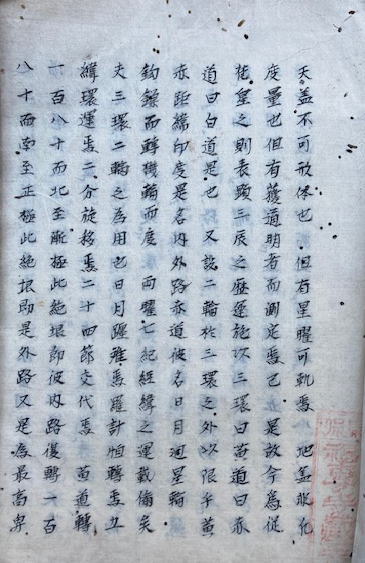 天盖不可形体也　但有星曜可軌焉　地盖非凡
度量也但有蘐道明者而測定焉已　是故今為從
苑皇之則表顕三辰之歴運施以三環曰黄道曰赤
道曰白道是也　又設二輪於三環之外以限乎黄
赤距緯印度是名内外路赤道彼名日月逥星輪
鈎鎖而轉機輪而度　両曜七紀經緯之運載備矣
夫三環二輪之為用也日月躔離焉羅計恒轉焉五
緯環運焉二分旋移焉二十四節交代焉　黄道轉
一百八十而北至漸極此絶垠即彼内路復轉一百
八十而南至正極此絶垠即是外路又是為最高卑